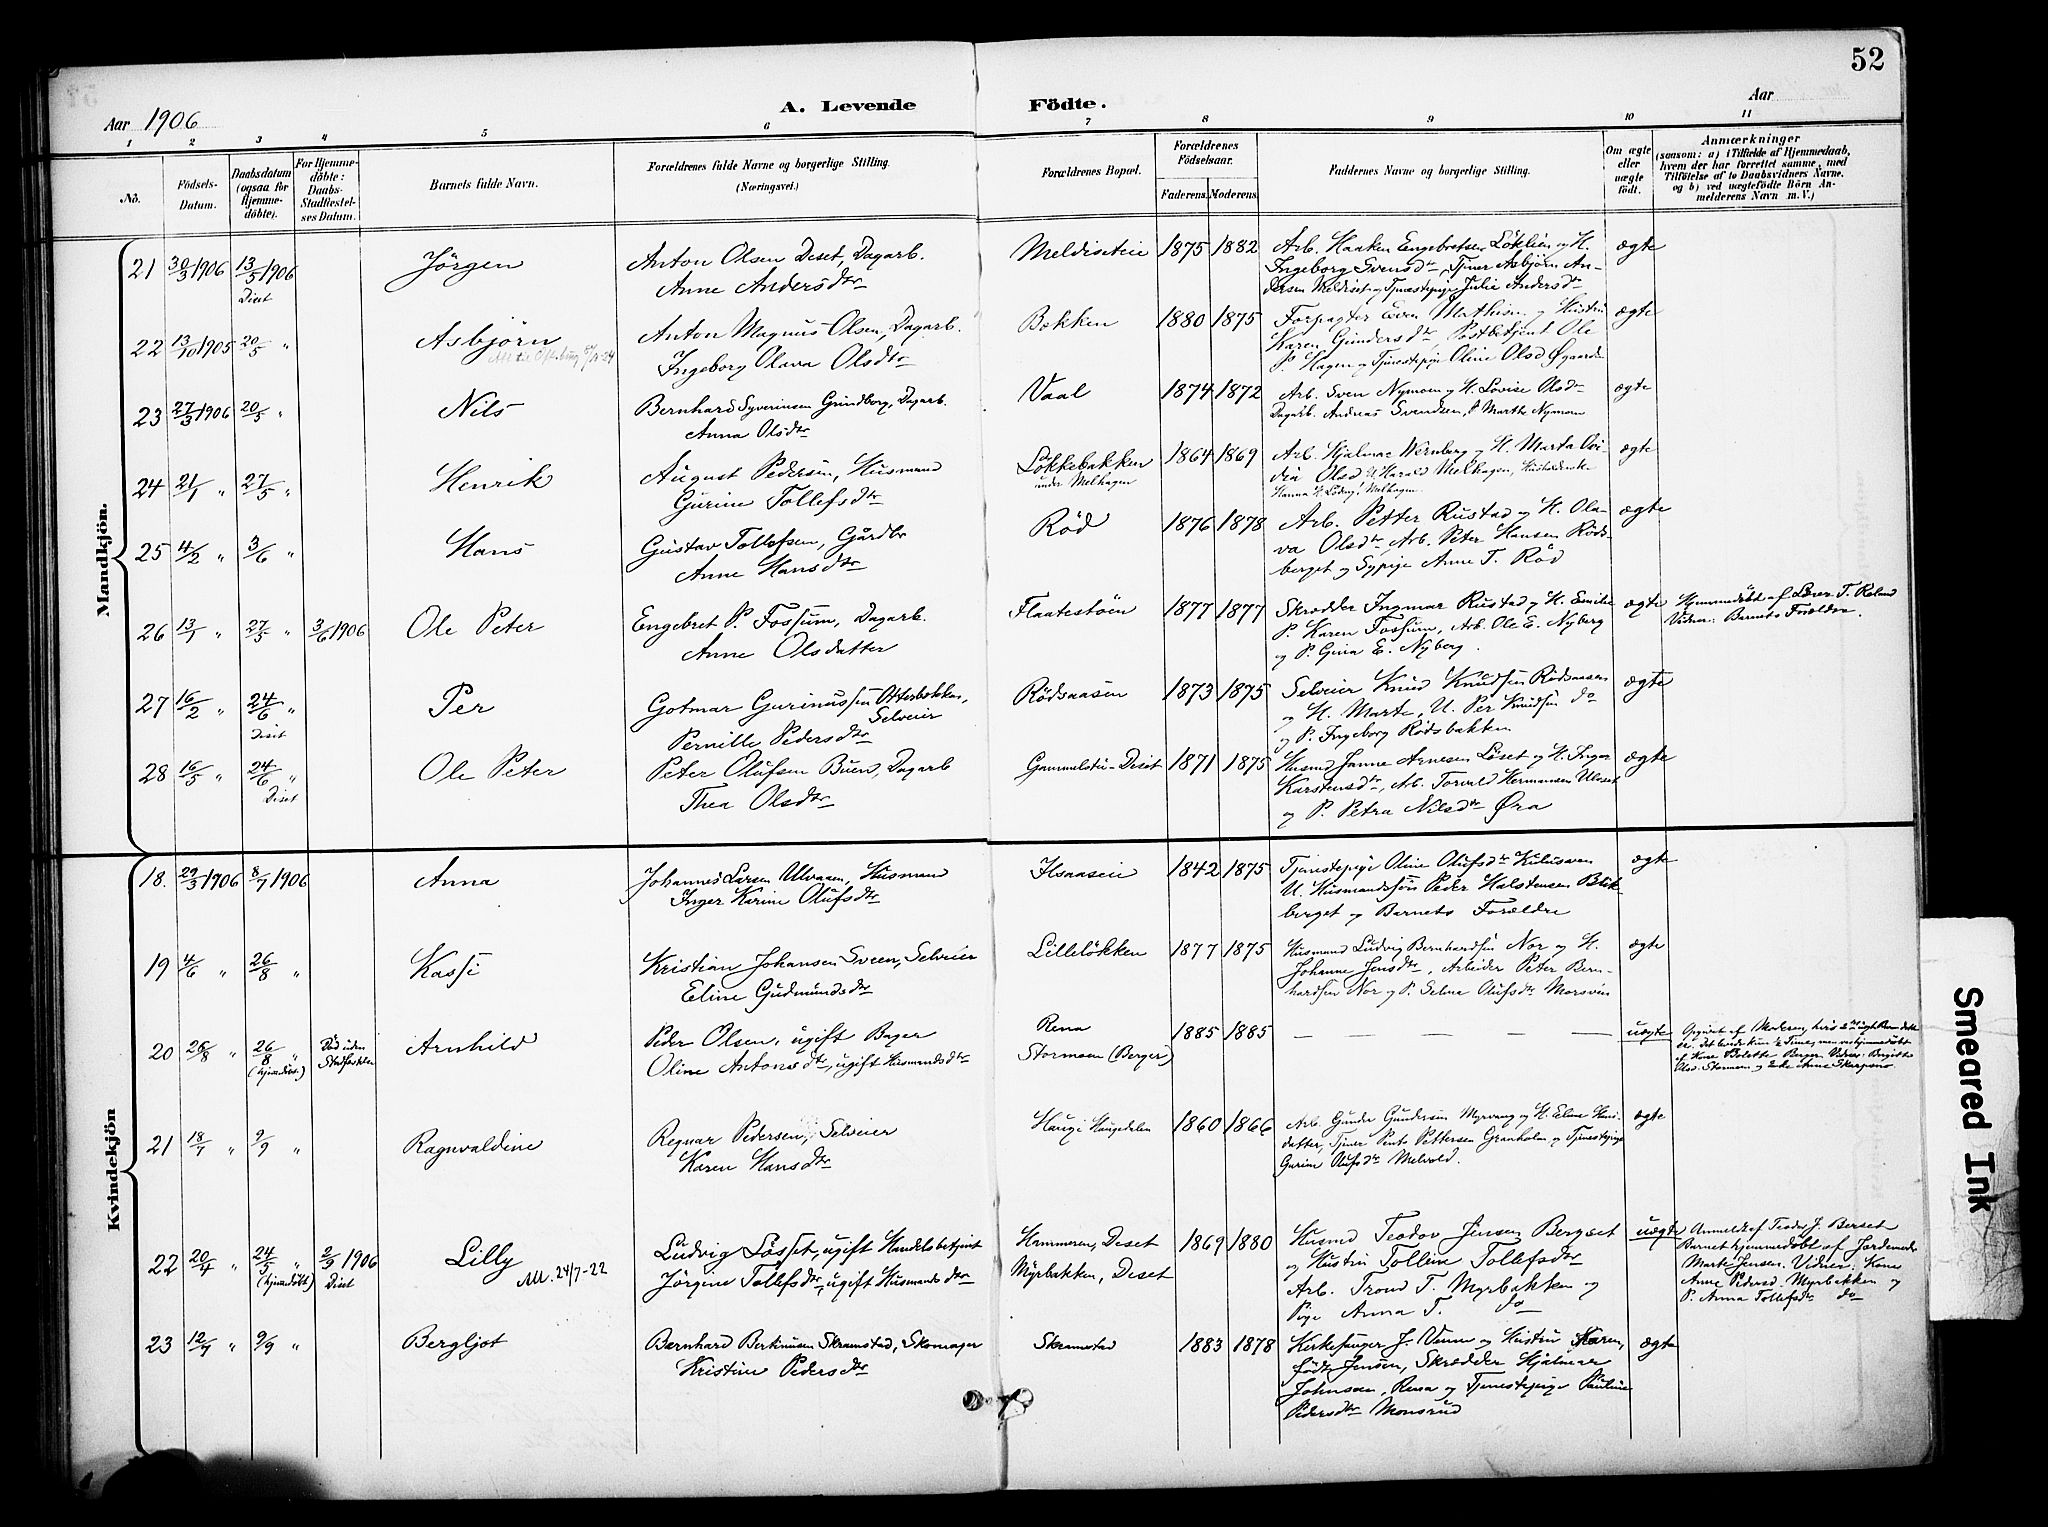 52
A. Levende Fødte.
Aar 1906
Aar
1 2 3 4 5 6 7 8 9 10 11
No.
Födsels-Datum.
Daabsdatum (ogsaa for Hjemmedöbte).
For Hjemmedöbte: Daabs-Stadfæstelses Datum.
Barnets fulde Navn.
Forældrenes fulde Navne og borgerlige Stilling. (Næringsvei.)
Forældrenes Bopæl.
Forældrenes Födselsaar.
Faderens. Moderens.
Faddernes Navne og borgerlige Stilling.
Om ægte eller uægte födt.
Anmærkninger
(saasom: a) i Tilfælde af Hjemmedaab, hvem der har forrettet samme, med Tilföielse af to Daabsvidners Navne, og b) ved uægtefödte Börn Anmelderens Navn m. V.)
Mandkjön.
21 30/3 1906 13/5 1906 Diset Jörgen
Anton Olsen Deset, Dagarb.
Anne Andersdtr
Meldiseteie 1875 1882
Arb. Haaken Engebretsen Löklien og H.
Ingeborg Svensdtr, Tjener Asbjörn An-
dersen Meldiset og Tjenestepige Julie Andersdtr
ægte
22 13/10 1905 20/5 " Asbjörn
Anton Magnus Olsen, Dagarb.
Ingeborg Olava Olsdtr
Bekken 1880 1875
Forpagter Even Mathisen og Hustru
Karen Gundersdtr, Postbetjent Ole
P. Hagen og Tjenestepige Oline Olsd Øgaarden
ægte
23 27/3 1906 20/5 " Nils
Bernhard Syverinsen Grindberg, Dagarb.
Anna Olsdtr
Vaal 1874 1872
Arb. Sven Nymoen og H. Lovise Olsdtr
Dagarb. Andreas Svendsen, P. Marthe Nymoen
ægte
24 21/1 " 27/5 " Henrik
August Pedersen, Husmand
Gurine Tollefsdtr
Løkkebakken
under Melhagen
1864 1869
Arb. Hjalmar Wernberg og H. Marta Ovi-
dia Olsd U. Harald Melhagen,
ægte
25 4/2 " 3/6 " Hans
Gustav Tollefsen, Gårdbr
Anne Hansdtr
Rød 1876 1878
Arb. Petter Rustad og H. Ola-
va Olsdtr, Arb. Peter Hansen Röds-
berget og Sypige Anne T. Röd
ægte
26 13/1 " 27/5 " 3/6 1906 Ole Peter
Engebret P. Fossum, Dagarb.
Anne Olsdatter
Flaatestöen 1877 1877
Skrædder Ingmar Rustad og H. Emilie
P. Karen Fossum, Arb. Ole E. Nyberg
og P. Gina E. Nyberg.
ægte
Hjemmedöbt af Lærer T. Roland
Vidner: Barnets Forældre.
27 16/2 " 24/6 " Diset Per
Gotmar Gurinussen Østerbekken,
Selveier
Pernille Pedersdtr
Rödsaasen 1873 1875
Selveier Knud Knudsen Rödsaasen
og H. Marte, U. Per Knudsen do
og P. Ingeborg Rödsbakken
ægte
28 16/5 " 24/6 " Diset Ole Peter
Peter Olufsen Buen, Dagarb
Thea Olsdtr
Gammelstu-Diset 1871 1875
Husmd Janne Arnesen Löset og H. Inga
Karstensdtr, Arb. Torvald Hermansen Ulvset
og P. Petra Nilsdtr Øra
ægte
Kvindekjön
18. 29/3 1906 8/7 1906 Anna
Johannes Larsen Ulvaaen, Husmand
Inger Karine Olufsdtr
Ilsaaseie 1842 1875
Tjenestepige Oline Olufsdtr Kulusveen
U. Husmandssön Peder Halstensen Blik-
berget og Barnets Forældre
ægte
19 4/6 " 26/8 " Kassi
Kristian Johansen Sveen, Selveier
Eline Gudmundsdtr
Lilleløkken 1877 1875
Husmand Ludvig Bernhardsen Nor og H.
Johanne Jensdtr, Arbeider Peter Bern-
hardsen Nor og P. Selma Olufsdtr Morsveen
ægte
20 26/8 " 26/8 " (hjemdöbt.) Död uden Stadfæstelse Arnhild
Peder Olsen, ugift Bager
Oline Antonsdtr, ugift Husmandsdtr
Rena
Stormoen (Berger)
1885 1885
— — — — —
uægte
21 18/7 " 9/9 " Ragnvaldine
Regnar Pedersen, Selveier
Karen Hansdtr
Hauge Haugedalen 1860 1866
Arb. Gunder Gundersen Myrvang og H. Eline Hans-
datter, Tjener Pettersen Granholm og Tjenestepige
Gurine Olufsdtr Melvold.
ægte
22 20/4 " 24/5 " (hjemdöbt) 2/9 1906 Diset Lilly
Att. 24/7-22
Ludvig Lösset, ugift Handelsbetjent
Jörgine Tollefsdtr, ugift Husmandsdtr
Hammeren, Deset
Myrbakken, Deset
1869 1880
Husmd Teodor Jensen Bergset
og Hustru Tolline Tollefsdtr
Arb. Trond T. Myrbakken og
Pige Anna T. do
uægte
Anmeldt af Teodor J. Berset
Barnet hjemmedöbt af Jordemoder
Marte Jensen. Vidner: Kone
Anne Pedersd. Myrbakken og
P. Anna Tollefsdtr do
23 12/7 " 9/9 " Bergljot
Bernhard Bertinusen Skramstad, Skomager
Kristine Pedersdtr
Skramstad 1883 1878
Kirkesanger J. Venne og Hustru Karen,
födt Jensen, Skrædder Hjalmar
Johnsen, Rena og Tjenestepige Pauline
Pedersdtr Monsrud
ægte
Smeared Ink